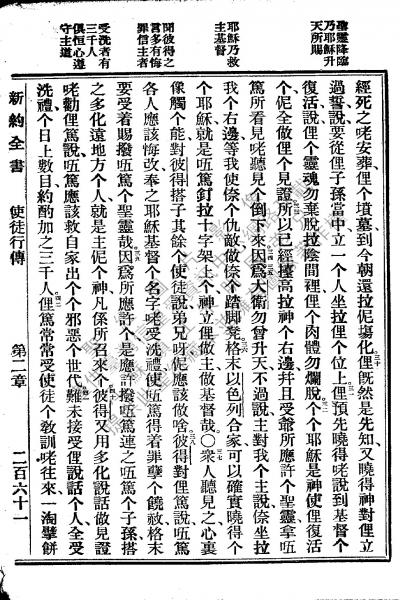 聖靈降臨
乃耶穌升
天所賜
耶穌乃救
主基督
聞彼得之
言多有悔
罪信主者
受洗者有
三千人
俱恒心遵
守主道
經死之咾安葬俚個墳墓到今朝還拉伲塲化俚既然是先知又曉得神對俚立
過誓說要從俚子孫當中立一个人坐拉俚个位上俚預先曉得咾說到基督个
復活說俚个靈魂勿棄脫拉陰間裡俚个肉體勿爛脫个个耶穌是神使俚復活
个伲全做俚个見證所以已經擡高拉神个右邊幷且受爺所應許个聖靈拿㑚
篤所看見咾聽見个倒下來因爲大衛勿曾升天不過說主對我个主說倷坐拉
我个右邊等我使倷个仇敵做倷个踏脚凳格末以色列合家可以確實曉得个
个耶穌就是㑚篤釘拉十字架上个神立俚做主做基督哉〇衆人聽見之心裏
像觸个能對彼得搭子其餘个使徒說弟兄呀伲應該做啥彼得對俚篤說㑚篤
各人應該悔改奉之耶穌基督个名字咾受洗禮使㑚篤得着罪孽个饒赦格末
要受着賜撥㑚篤个聖靈哉因爲所應許个是應許撥㑚篤連之㑚篤个子孫搭
之多化遠地方个人就是主伲个神凡係所召來个彼得又用多化說話做見證
咾勸俚篤說㑚篤應該救自家出个个邪惡个世代難未接受俚說話个人全受
洗禮个日上數目約酌加之三千人俚篤常常受使徒个敎訓咾往來一淘擘餅
新約全書
使徒行傳
第二章
二百六十一